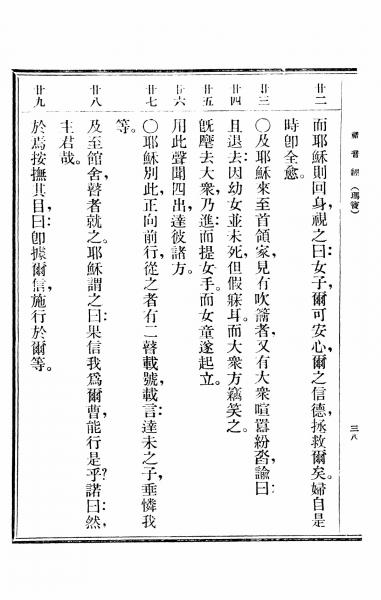 福音經（瑪竇）
三八
廿二
而耶穌則回身視之曰：女子，爾可安心，爾之信德，拯救爾矣。婦自是
時卽全愈。
廿三
〇及耶穌來至首領家，見有吹籥者，又有大衆喧囂紛沓，諭曰：
廿四
且退去：因幼女並未死，但假寐耳。而大衆方竊笑之。
廿五
旣麾去大衆，乃進而提女手。而女童遂起立。
廿六
用此聲聞四出，達彼諸方。
廿七
〇耶穌別此，正向前行，從之者有二瞽，載號，載言：達未之子，垂憐我
等。
廿八
及至館舍，瞽者就之。耶穌謂之曰：果信我爲爾曹能行是乎？諾曰：然，
主君哉。
廿九
於焉按撫其目，曰：卽據爾信，施行於爾等。